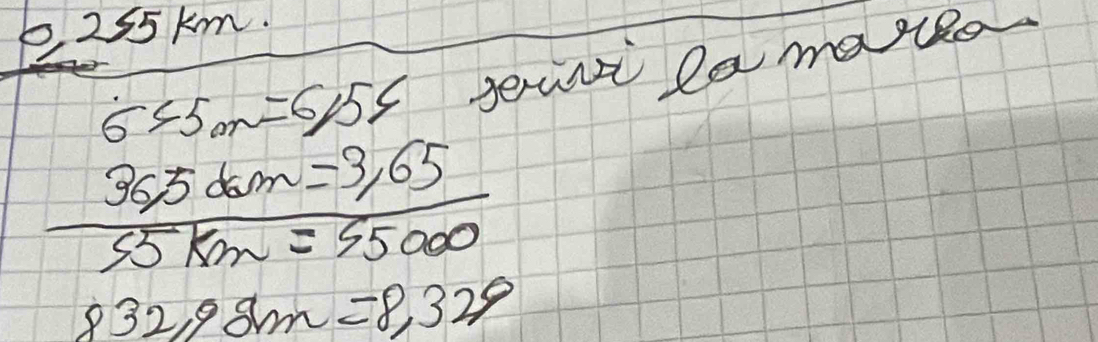 0,255 km.
655 m = 6,55 scrivi la marca
36,5 dam = 3,65
55 Km = 55000
832,9 dm = 8,329